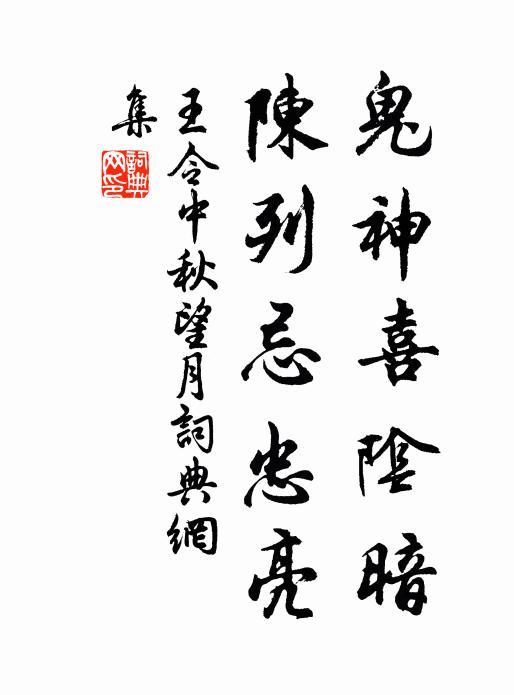 鬼神喜陰暗
陳列忌忠亮
王令中秋望月詞典網
集
詞典網印